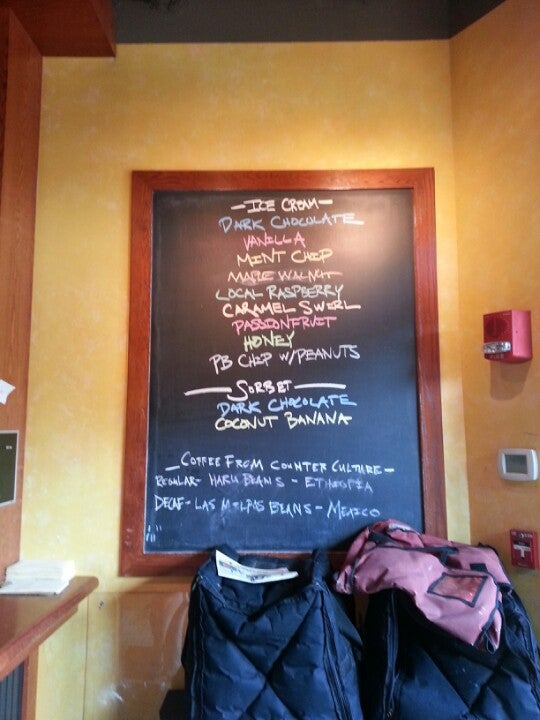 ICE CREAM
DARK CHOCOLATE
VANILLA
MINT CHIP
MAPLE WALNUT
LOCAL RASPBERRY
CARAMEL SWIRL
PASSIONFRUIT
HONEY
PB CHIP W/PEANUTS
SORBET
DARK CHOCOLATE
COCONUT BANANA
COFFEE FROM COUNTER CULTURE-
REGULAR- HARU BEANS - ETHIOPIA
DECAF- LAS MILPAS BEANS - MEXICO